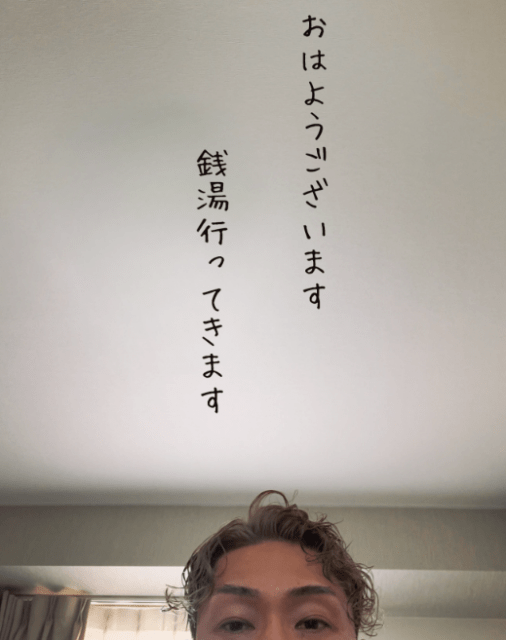 おはようございます
銭湯行ってきます